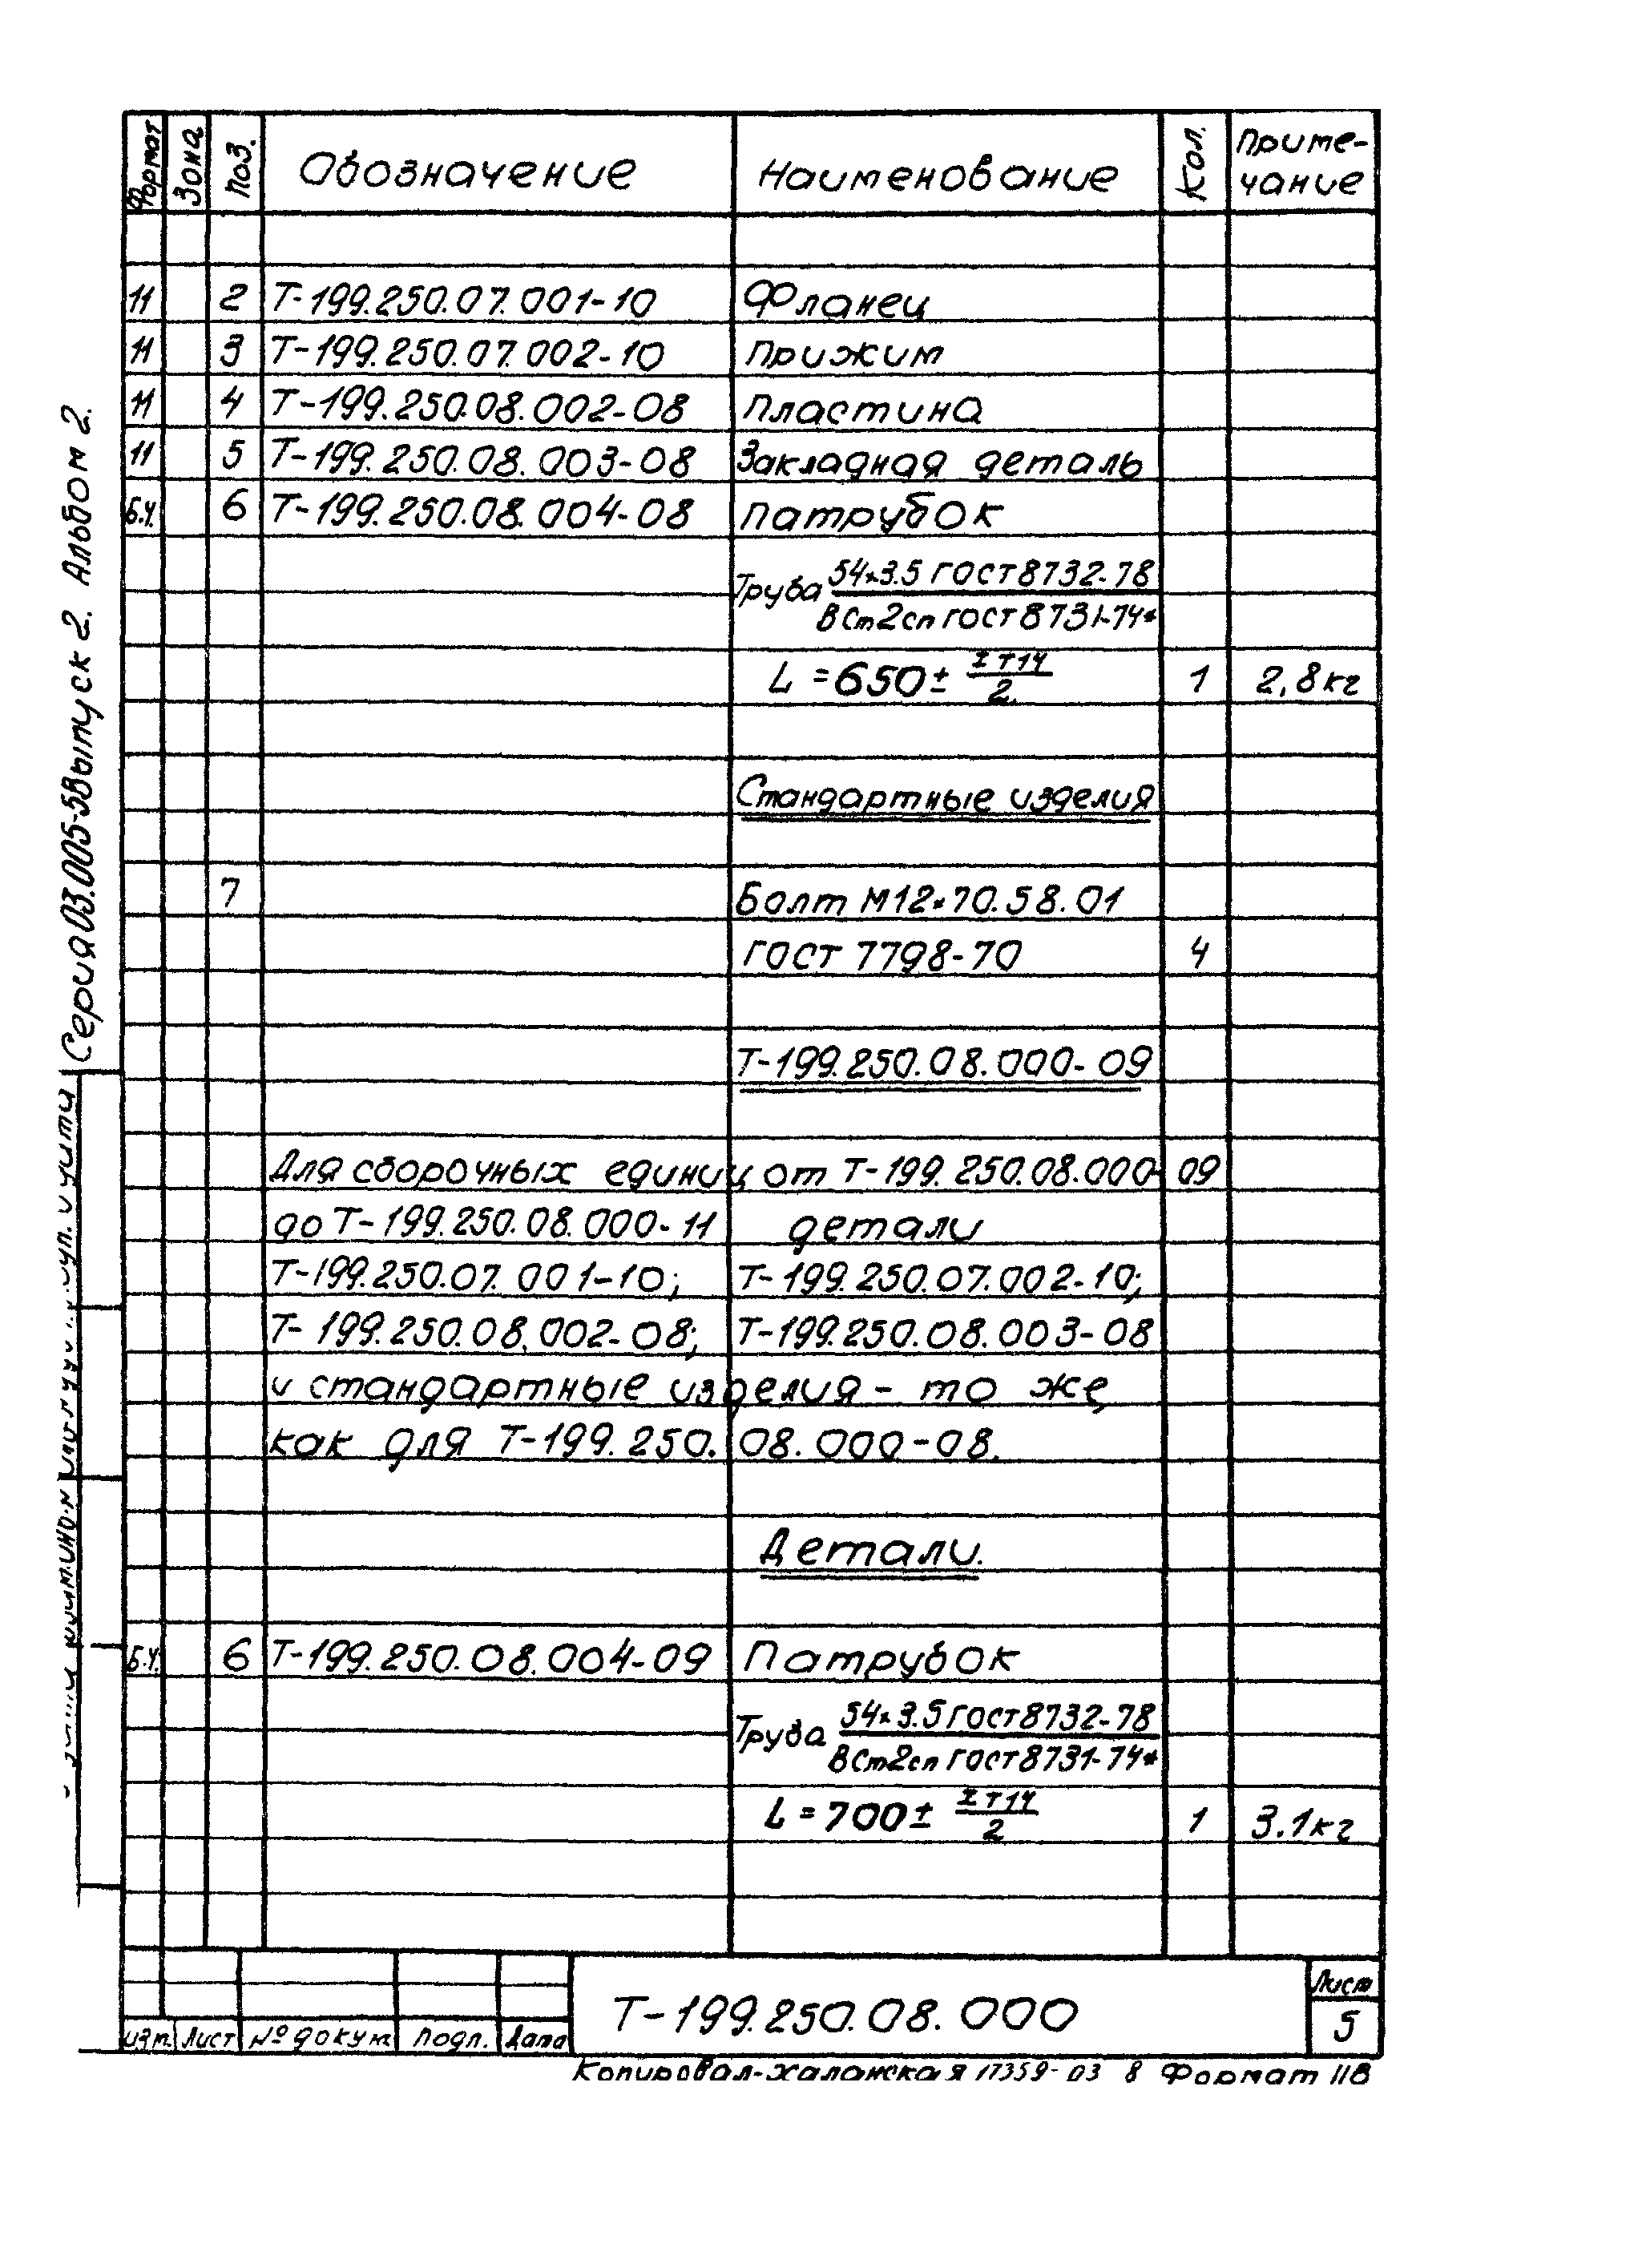 Формат Зона Поз. Обозначение Наименование Кол. Приме-
чание
11 2 Т-199.250.07.001-10 Фланец
11 3 Т-199.250.07.002-10 Прижим
11 4 Т-199.250.08.002-08 Пластина
11 5 Т-199.250.08.003-08 Закладная деталь
Б.Ч. 6 Т-199.250.08.004-08 Патрубок
Труба 54×3.5 ГОСТ 8732-78
ВСт2сп ГОСТ 8731-74*
L = 650 ± IT14 1 2,8кг
2
Стандартные изделия
7 Болт М12×70.58.01
ГОСТ 7798-70 4
Т-199.250.08.000-09
Для сборочных единиц от Т-199.250.08.000-09
до Т-199.250.08.000-11 детали
Т-199.250.07.001-10; Т-199.250.07.002-10;
Т-199.250.08.002-08; Т-199.250.08.003-08
и стандартные изделия - то же,
как для Т-199.250.08.000-08.
Детали.
Б.Ч. 6 Т-199.250.08.004-09 Патрубок
Труба 54×3.5 ГОСТ 8732-78
ВСт2сп ГОСТ 8731-74*
L = 700 ± IT14 1 3.1кг
2
Изм. Лист № докум. Подп. Дата
Т-199.250.08.000
Лист
5
Копировал-Халанская 17359-03 8 Формат 11В
Серия 03.005-5 Выпуск 2. Альбом 2.